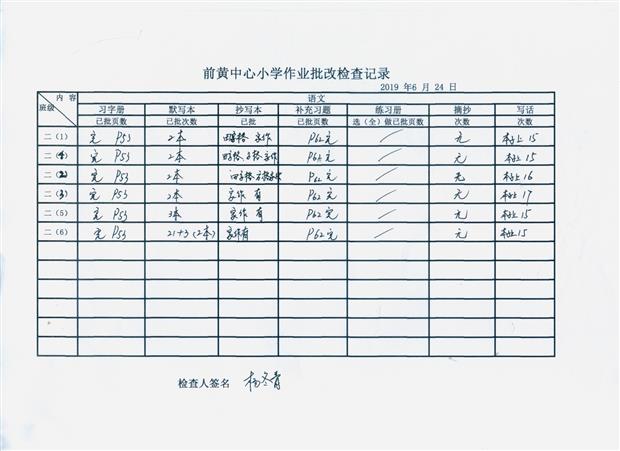 前黄中心小学作业批改检查记录
2019 年6 月 24 日
内 容 语文
班级 习字册 默写本 抄写本 补充习题 练习册 摘抄 写话
已批页数 次数 已批 已批页数 选（全）做已批页数 次数 次数
二（1） 完 P53 2本 田字格 家作 P62完 / 无 本上 15
二（4） 完 P53 2本 P62完 / 无 本上 15
二（2） 完 P53 2本 P62完 / 无 本上 16
二（3） 完 P53 2本 家作 有 P62 完 / 无 本上 17
二（5） 完 P53 3本 家作 有 P62 完 / 无 本上15
二（6） 完 P53 21+3（2本） 家作有 P62 完 / 无 本上15
检查人签名 杨冬青